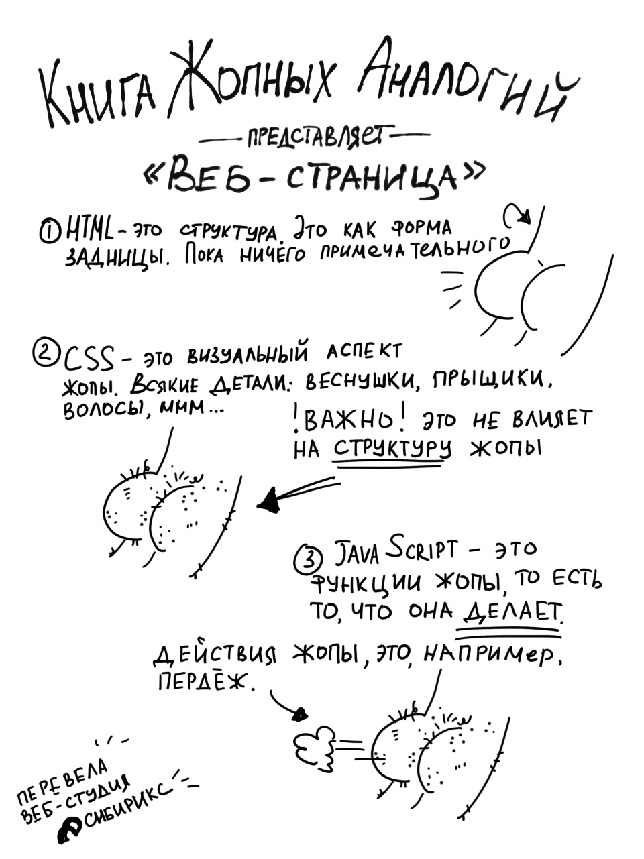 Книга Жопных Аналогий
— представляет —
«Веб-страница»
① HTML - это структура. Это как форма
задницы. Пока ничего примечательного
② CSS - это визуальный аспект
жопы. Всякие детали: веснушки, прыщики,
волосы, ммм...
!Важно! это не влияет
на структуру жопы
③ JavaScript - это
функции жопы, то есть
то, что она делает.
Действия жопы, это, например,
пердёж.
Перевела
веб-студия
Сибирикс